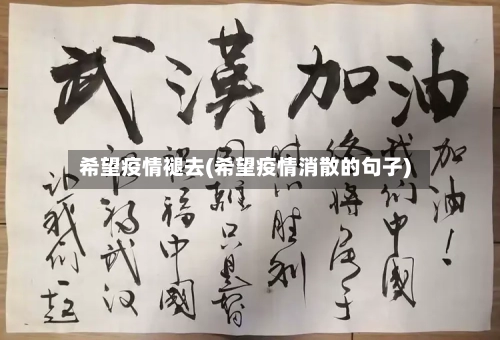 武漢加油
希望疫情褪去(希望疫情消散的句子)
让我们一起
福武汉
祝福中國
困難只是暂
时的胜利
终将属于
我们中國
加油！